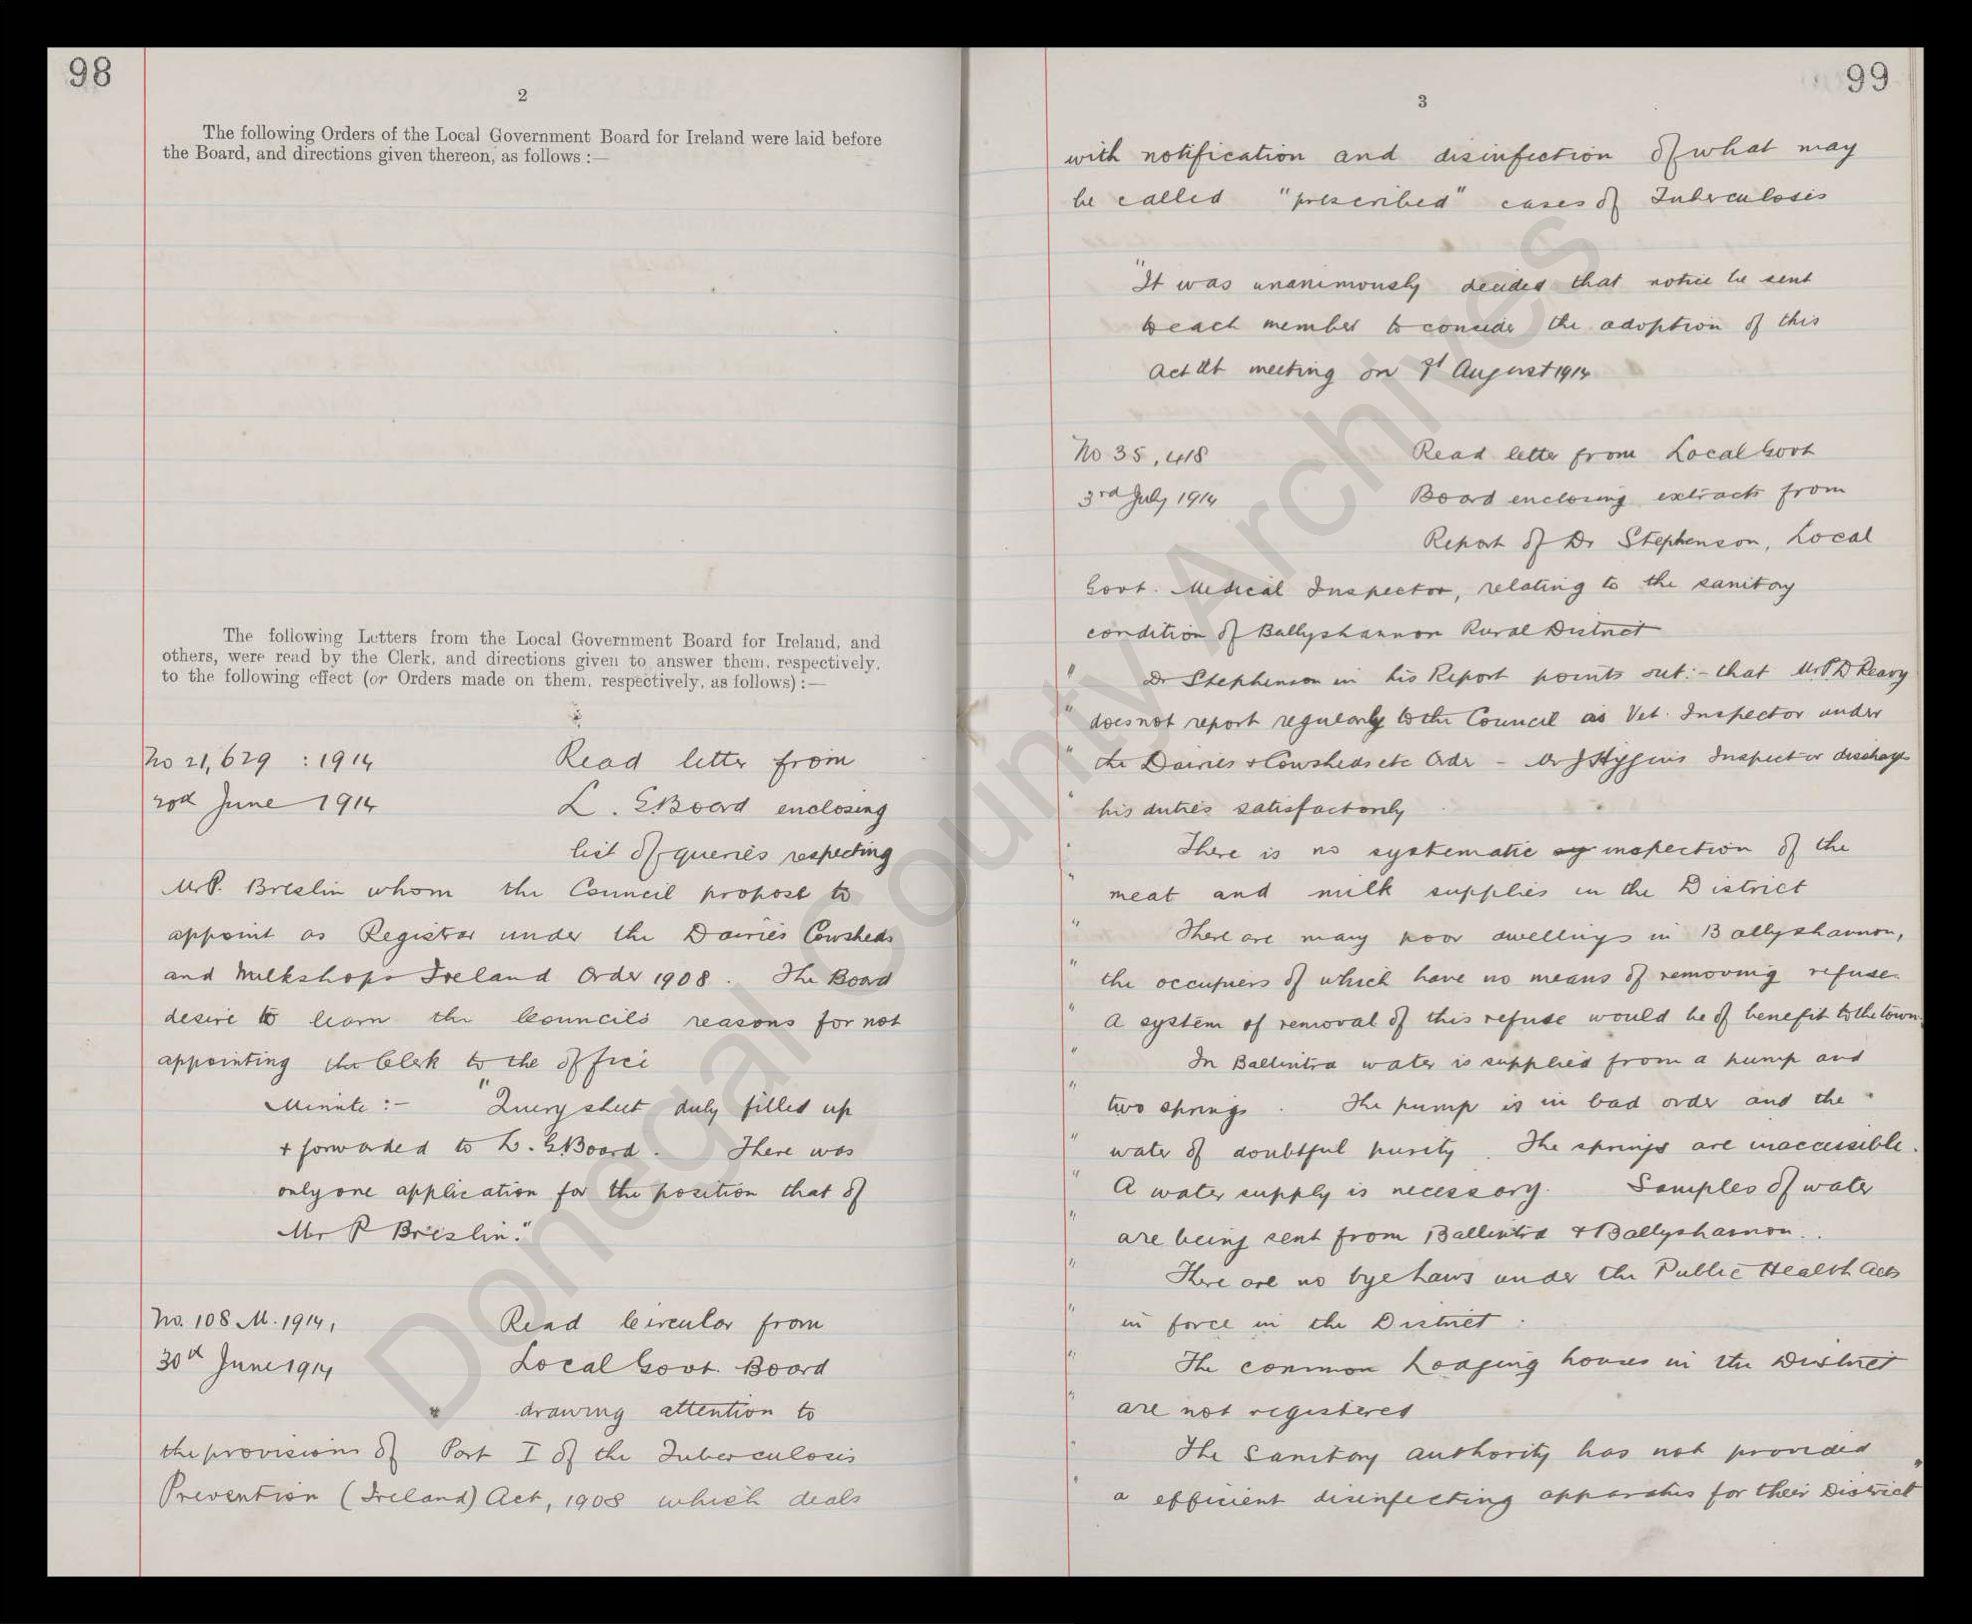 98
2
The following Orders of the Local Government Board for Ireland were laid before
the Board, and directions given thereon, as follows :—
The following Letters from the Local Government Board for Ireland, and
others, were read by the Clerk, and directions given to answer them, respectively,
to the following effect (or Orders made on them, respectively, as follows) :—
No 21,629 : 1914 Read letter from
June 1914 L. G. Board enclosing
list of queries respecting
Mr P. Breslin whom the Council propose to
appoint as Registrar under the Dairies Cowsheds
and Milkshops Ireland Order 1908. The Board
desire to learn the Councils reasons for not
appointing the Clerk to the office
Minute :- "Query sheet duly filled up
+ forwarded to L. G. Board. There was
only one application for the position that of
Mr P Breslin."
No. 108 M. 1914, Read Circular from
30th June 1914 Local Govt. Board
drawing attention to
the provisions of Part I of the Tuberculosis
Prevention (Ireland) Act, 1908 which deals
99
3
with notification and disinfection of what may
be called "prescribed" cases of Tuberculosis
"It was unanimously decided that notice be sent
to each member to consider the adoption of this
Act at meeting on August 1914
No 35,418 Read letter from Local Govt
3rd July 1914 Board enclosing extracts from
Report of Dr Stephenson, Local
Govt. Medical Inspector, relating to the sanitary
condition of Ballyshannon Rural District
" Dr Stephenson in his Report points out :- that Mr P D Reavy
" does not report regularly to the Council as Vet. Inspector under
" the Dairies + Cowsheds etc Order - Mr J Higgins Inspector discharges
" his duties satisfactorily
" There is no systematic sy inspection of the
" meat and milk supplies in the District
" There are many poor dwellings in Ballyshannon,
" the occupiers of which have no means of removing refuse.
" A system of removal of this refuse would be of benefit to the town.
" In Ballintra water is supplied from a pump and
" two springs. The pump is in bad order and the
" water of doubtful purity. The springs are inaccessible.
" A water supply is necessary. Samples of water
" are being sent from Ballintra + Ballyshannon.
" There are no bye Laws under the Public Health Acts
" in force in the District.
" The common Lodging houses in the District
" are not registered
" The Sanitary authority has not provided
" a efficient disinfecting apparatus for their District"
Donegal County Archives